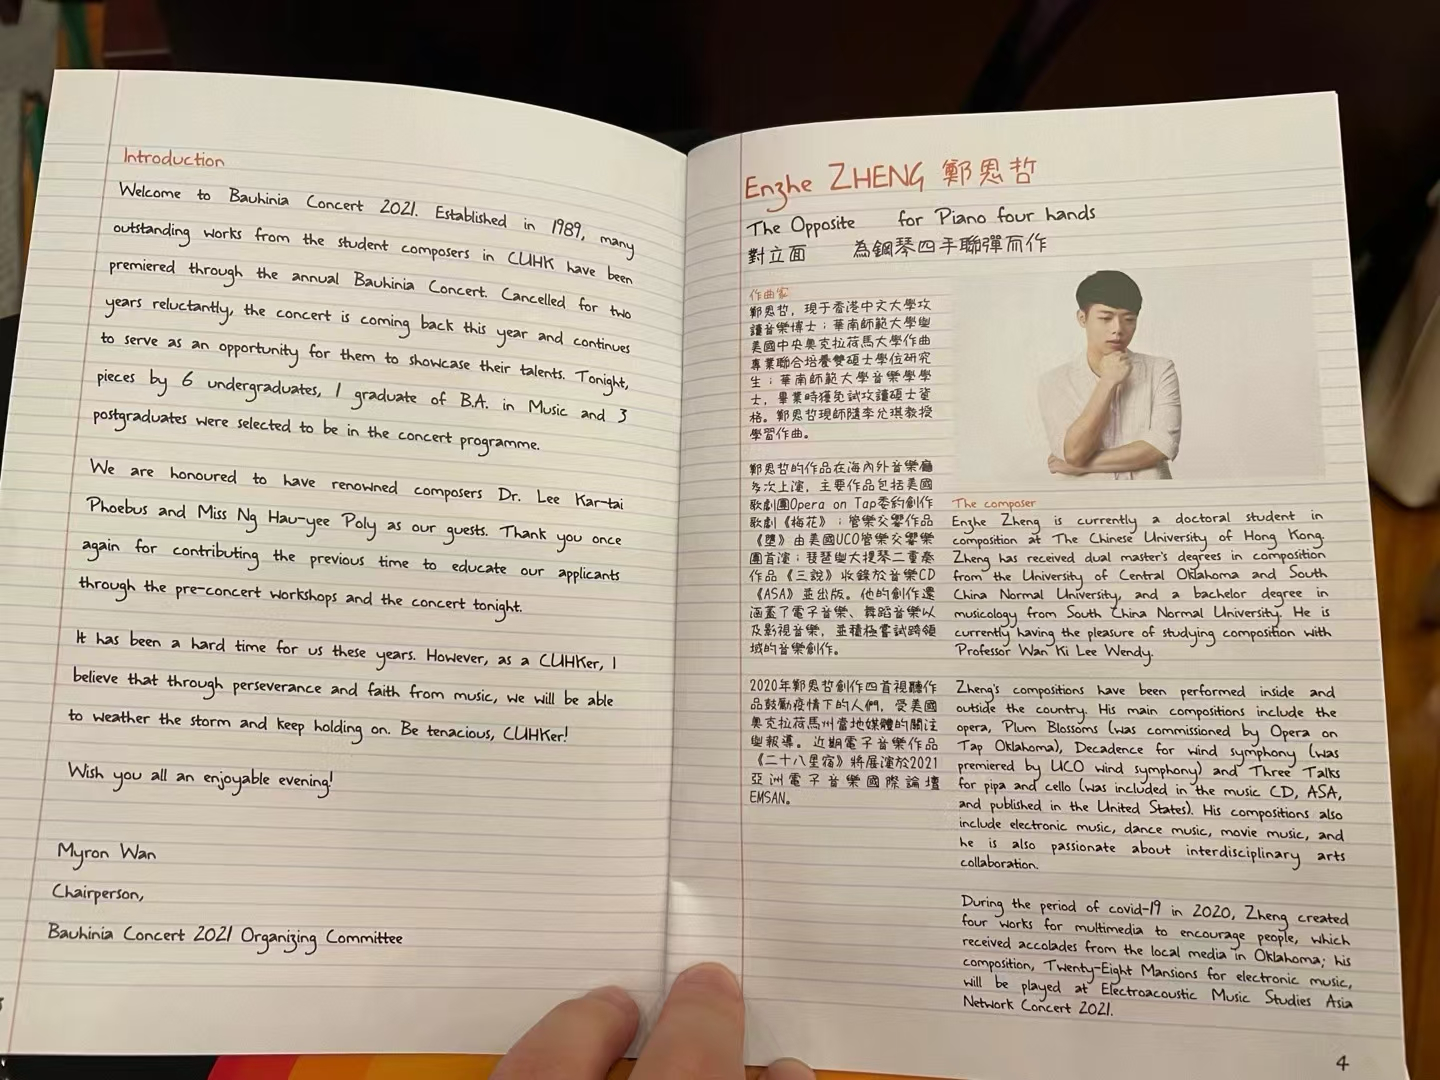 Introduction
Welcome to Bauhinia Concert 2021. Established in 1989, many
outstanding works from the student composers in CUHK have been
premiered through the annual Bauhinia Concert. Cancelled for two
years reluctantly, the concert is coming back this year and continues
to serve as an opportunity for them to showcase their talents. Tonight,
pieces by 6 undergraduates, 1 graduate of B.A. in Music and 3
postgraduates were selected to be in the concert programme.
We are honoured to have renowned composers Dr. Lee Kar-tai
Phoebus and Miss Ng Hau-yee Poly as our guests. Thank you once
again for contributing the previous time to educate our applicants
through the pre-concert workshops and the concert tonight.
It has been a hard time for us these years. However, as a CUHKer, I
believe that through perseverance and faith from music, we will be able
to weather the storm and keep holding on. Be tenacious, CUHKer!
Wish you all an enjoyable evening!
Myron Wan
Chairperson,
Bauhinia Concert 2021 Organizing Committee
Enzhe ZHENG 鄭恩哲
The Opposite for Piano four hands
對立面 為鋼琴四手聯彈而作
作曲家
鄭恩哲，現于香港中文大學攻
讀音樂博士；華南師範大學與
美國中央奧克拉荷馬大學作曲
專業聯合培養雙碩士學位研究
生；華南師範大學音樂學學
士，畢業時獲免試攻讀碩士資
格。鄭恩哲現師隨李允琪教授
學習作曲。
鄭恩哲的作品在海內外音樂廳
多次上演，主要作品包括美國
歌劇團Opera on Tap委約創作
歌劇《梅花》；管樂交響作品
《墮》由美國UCO管樂交響樂
團首演；琵琶與大提琴二重奏
作品《三說》收錄於音樂CD
《ASA》並出版。他的創作還
涵蓋了電子音樂、舞蹈音樂以
及影視音樂，並積極嘗試跨領
域的音樂創作。
2020年鄭恩哲創作四首視聽作
品鼓勵疫情下的人們，受美國
奧克拉荷馬州當地媒體的關注
與報導。近期電子音樂作品
《二十八星宿》將展演於2021
亞洲電子音樂國際論壇
EMSAN。
The composer
Enzhe Zheng is currently a doctoral student in
composition at The Chinese University of Hong Kong.
Zheng has received dual master's degrees in composition
from the University of Central Oklahoma and South
China Normal University, and a bachelor degree in
musicology from South China Normal University. He is
currently having the pleasure of studying composition with
Professor Wan Ki Lee Wendy.
Zheng's compositions have been performed inside and
outside the country. His main compositions include the
opera, Plum Blossoms (was commissioned by Opera on
Tap Oklahoma), Decadence for wind symphony (was
premiered by UCO wind symphony) and Three Talks
for pipa and cello (was included in the music CD, ASA,
and published in the United States). His compositions also
include electronic music, dance music, movie music, and
he is also passionate about interdisciplinary arts
collaboration.
During the period of covid-19 in 2020, Zheng created
four works for multimedia to encourage people, which
received accolades from the local media in Oklahoma; his
composition, Twenty-Eight Mansions for electronic music,
will be played at Electroacoustic Music Studies Asia
Network Concert 2021.
4